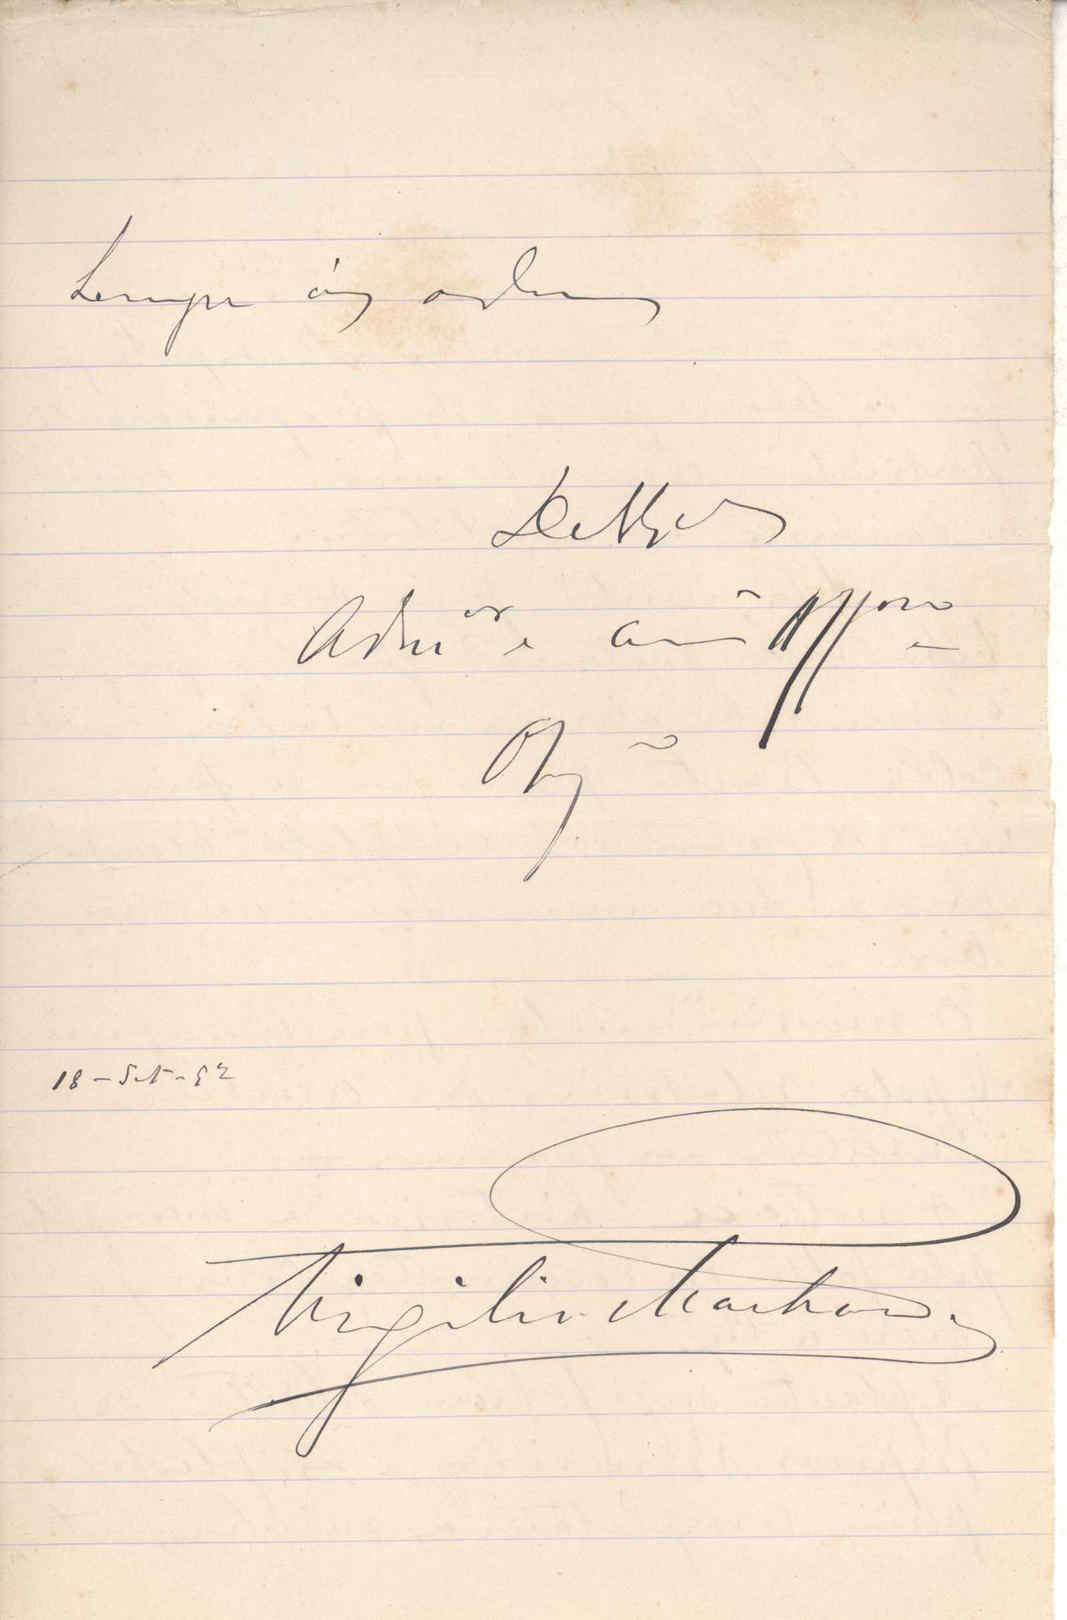 Sempre ás ordens
De V. Ex.ª
Adm.or e am.º aff.mo
Obg.º
18-Set-92
Virgilio Machado